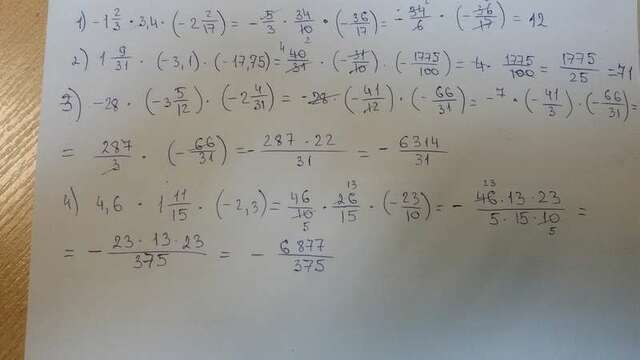 1) -1 2/3 · 3,4 · (-2 2/17) = - 5/3 · 34/10 · (-36/17) = - 34/6 · (-36/17) = 12
2) 1 9/31 · (-3,1) · (-17,75) = 40/31 · (-31/10) · (-1775/100) = -4 · 1775/100 = 1775/25 = 71
3) -28 · (-3 5/12) · (-2 4/31) = -28 · (-41/12) · (-66/31) = -7 · (-41/3) · (-66/31) =
= 287/3 · (-66/31) = - 287 · 22/31 = - 6314/31
4) 4,6 · 1 11/15 · (-2,3) = 46/10 · 26/15 · (-23/10) = - 46 · 13 · 23/5 · 15 · 10 =
= - 23 · 13 · 23/375 = - 6877/375